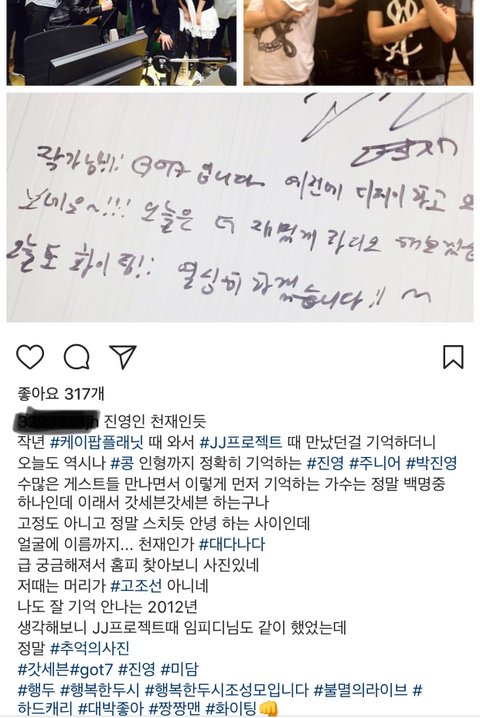 작가님!! GOT7 입니다 예전에 디제이 하고 오
보네요~!!! 오늘은 더 재밌게 라디오
오늘도 화이팅!! 열심히 하겠습니다!! ~
좋아요 317개
진영인 천재인듯
작년 #케이팝플래닛 때 와서 #JJ프로젝트 때 만났던걸 기억하더니
오늘도 역시나 #콩 인형까지 정확히 기억하는 #진영 #주니어 #박진영
수많은 게스트들 만나면서 이렇게 먼저 기억하는 가수는 정말 백명중
하나인데 이래서 갓세븐갓세븐 하는구나
고정도 아니고 정말 스치듯 안녕 하는 사이인데
얼굴에 이름까지... 천재인가 #대다나다
급 궁금해져서 홈피 찾아보니 사진있네
저때는 머리가 #고조선 아니네
나도 잘 기억 안나는 2012년
생각해보니 JJ프로젝트때 임피디님도 같이 했었는데
정말 #추억의사진
#갓세븐#got7 #진영 #미담
#행두 #행복한두시 #행복한두시조성모입니다 #불멸의라이브 #
하드캐리 #대박좋아 #짱짱맨 #화이팅👊